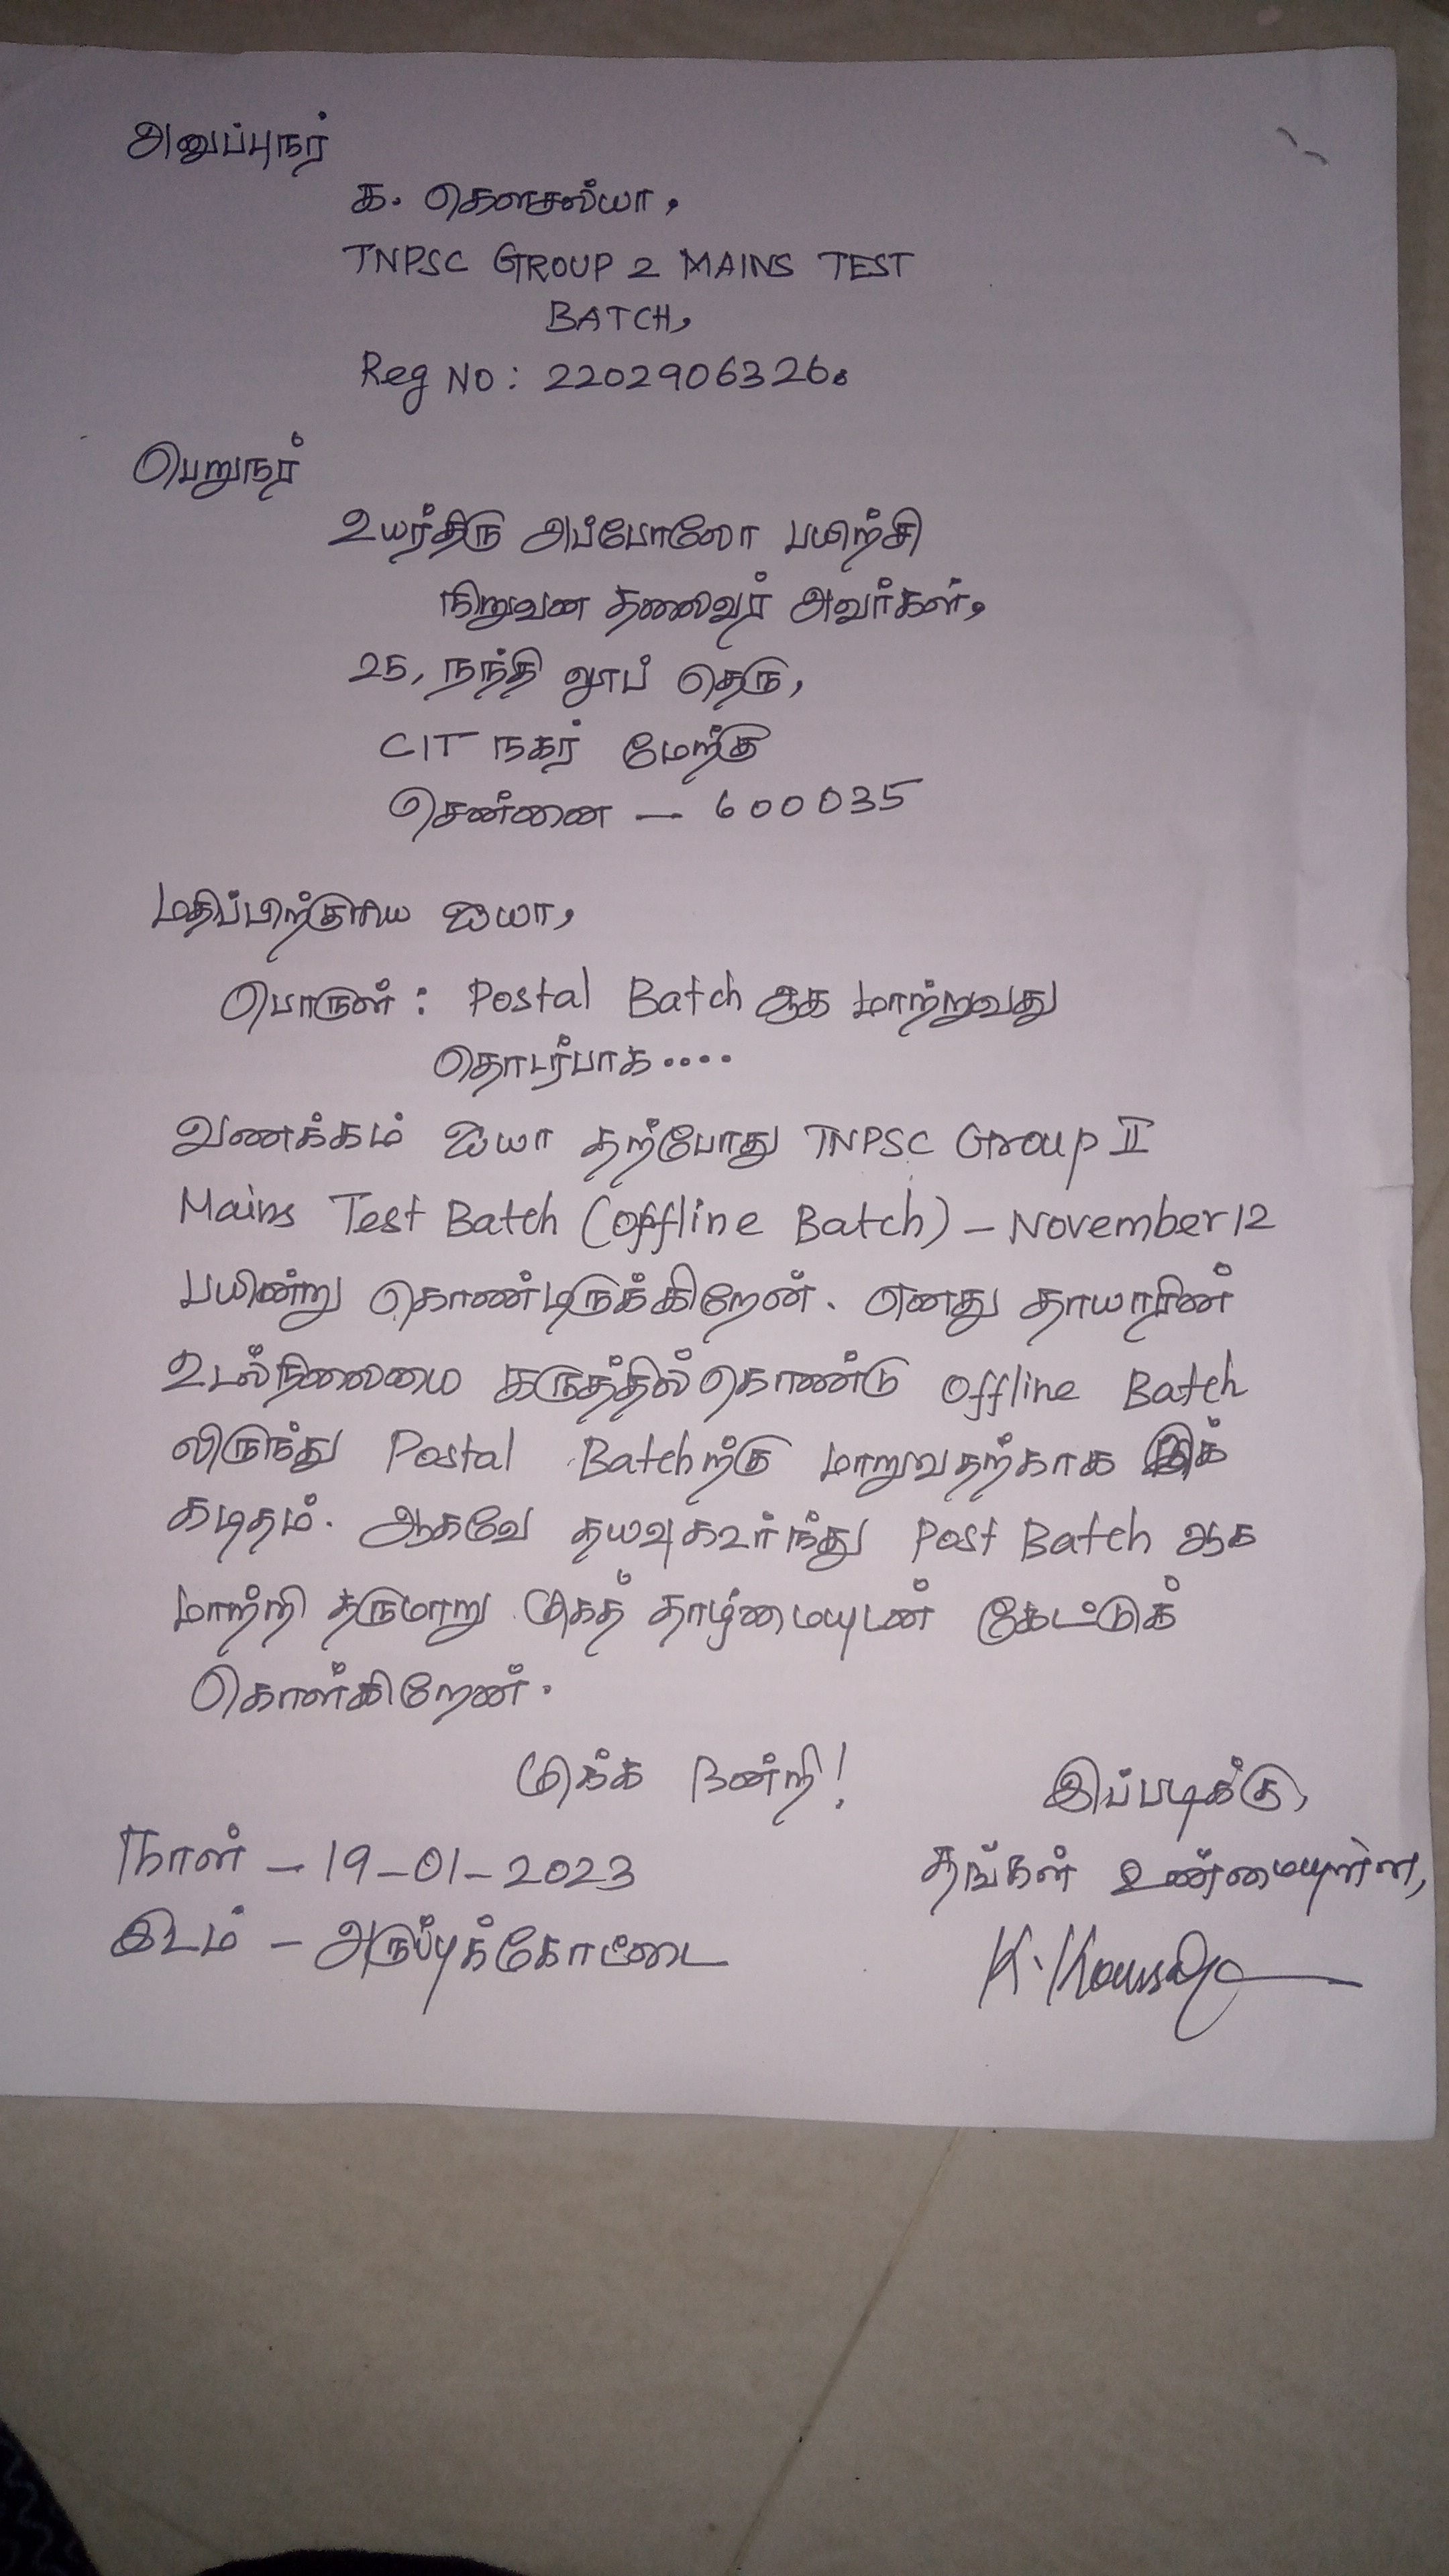 அனுப்புநர்
க. கௌசல்யா,
TNPSC GROUP 2 MAINS TEST
BATCH,
Reg NO: 2202906326.
பெறுநர்
உயர்திரு அப்போலோ பயிற்சி
நிறுவன தலைவர் அவர்கள்,
25, நந்தி லூப் தெரு,
CIT நகர் மேற்கு
சென்னை - 600035
மதிப்பிற்குரிய ஐயா,
பொருள் : Postal Batch ஆக மாற்றுவது
தொடர்பாக....
வணக்கம் ஐயா தற்போது TNPSC Group II
Mains Test Batch (Offline Batch) - November 12
பயின்று கொண்டிருக்கிறேன். எனது தாயாரின்
உடல்நிலைமை கருத்தில்கொண்டு Offline Batch
லிருந்து Postal Batchற்கு மாறுவதற்காக இக்
கடிதம். ஆகவே தயவுகூர்ந்து Post Batch ஆக
மாற்றி தருமாறு மிகத் தாழ்மையுடன் கேட்டுக்
கொள்கிறேன்.
மிக்க நன்றி!
இப்படிக்கு,
நாள் - 19-01-2023
தங்கள் உண்மையுள்ள,
இடம் - அருப்புக்கோட்டை
K. Kousalya